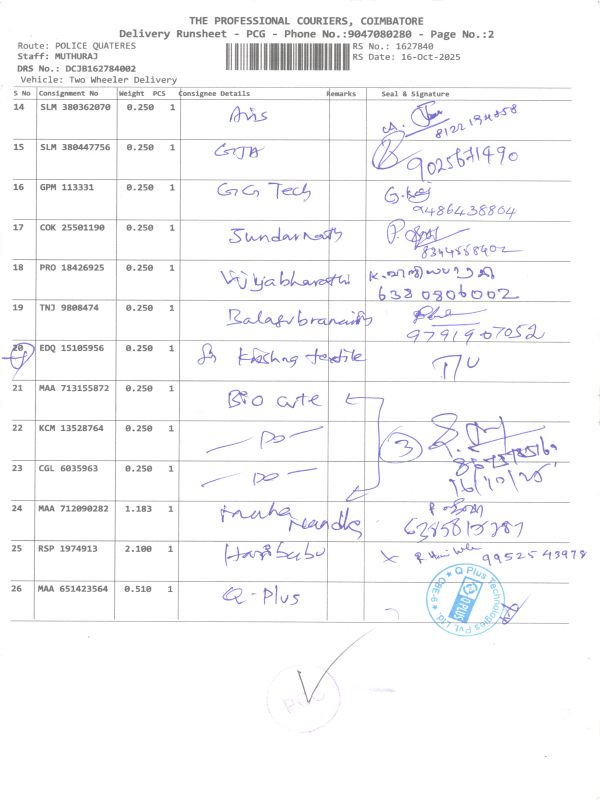 THE PROFESSIONAL COURIERS, COIMBATORE
Delivery Runsheet - PCG - Phone No.:9047080280 - Page No.:2
Route: POLICE QUATERES RS No.: 1627840
Staff: MUTHURAJ RS Date: 16-Oct-2025
DRS No.: DCJB162784002
Vehicle: Two Wheeler Delivery
S No Consignment No Weight PCS Consignee Details Remarks Seal & Signature
14 SLM 380362070 0.250 1
15 SLM 380447756 0.250 1 9025671490
16 GPM 113331 0.250 1 GG Tech 9486438804
17 COK 25501190 0.250 1 Sundarnath
18 PRO 18426925 0.250 1 Vijyabharathi 6380806002
19 TNJ 9808474 0.250 1 9791907052
20 EDQ 15105956 0.250 1 Krishna textile
21 MAA 713155872 0.250 1 Bio cute
22 KCM 13528764 0.250 1 -DO- 3
23 CGL 6035963 0.250 1 -DO- 16/10/25
24 MAA 712090282 1.183 1
25 RSP 1974913 2.100 1 Haribabu 9952543978
26 MAA 651423564 0.510 1 Q-Plus
Q Plus Technologies Pvt. Ltd. * CBE-6 *
Q-PLUS